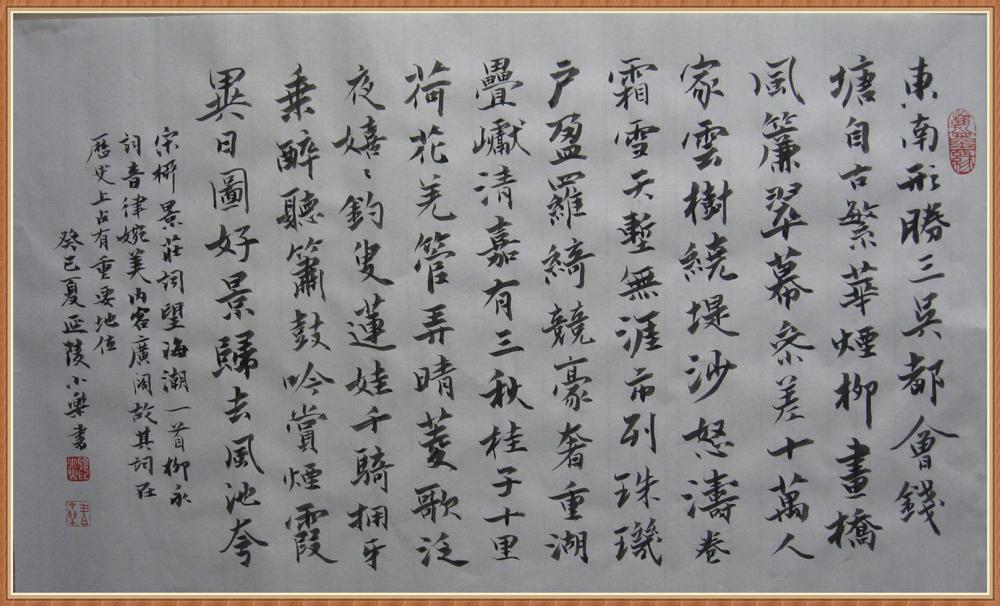 東南形勝三吳都會錢
塘自古繁華煙柳畫橋
風簾翠幕參差十萬人
家雲樹繞堤沙怒濤卷
霜雪天塹無涯市列珠璣
户盈羅綺競豪奢重湖
疊巘清嘉有三秋桂子十里
荷花羌管弄晴菱歌泛
夜嬉〻釣叟蓮娃千騎拥牙
乘醉聽簫鼓吟賞煙霞
異日圖好景歸去風池夸
宋柳景莊詞望海潮一首柳永
詞音律婉美内容廣阔故其詞在
歷史上占有重要地位
癸巳夏延陵小樂書